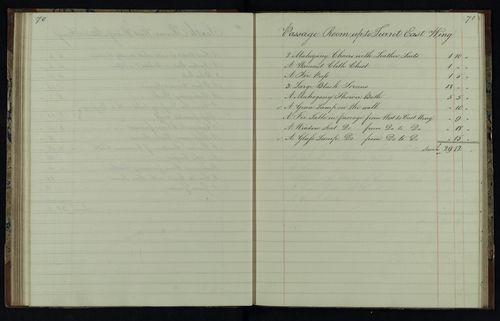 70
70
Passage Room up to Turret East Wing
2 Mahogany Chairs with Leather Seats 1 10 -
A Wainscot Cloth Chest 1 - -
A Fir 1 5 -
3 Large Screens 18 - -
A Mahogany Shower Bath 5 5 -
A Green Lamp on the wall - 10 -
A Fir Table in passage from West to East Wing - 9 -
A Window Seat Do from Do to Do - 18 -
A Glass Lamp Do from Do to Do - 15 -
29 12 -